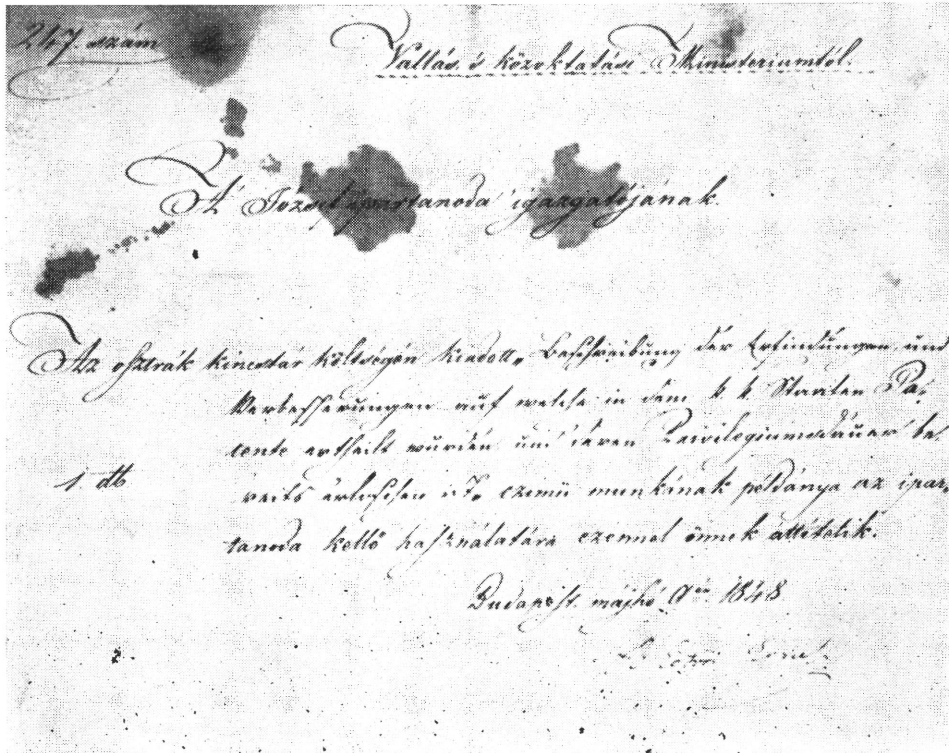 247. szám
Vallás és közoktatási Ministeriumtól.
A' József ipartanoda igazgatójának.
Az osztrák kincstár költségén kiadott „Beschreibung der Erfindungen und
Verbesserungen auf welche in dem k. k. Staaten Pa-
tente ertheilt wurden und deren Privilegiumsdauer be
reits erloschen ist„ czimü munkának példánya az ipar,
1 db
tanoda kellő használatára ezennel önnek áttétetik.
Budapest. majhó 1848.